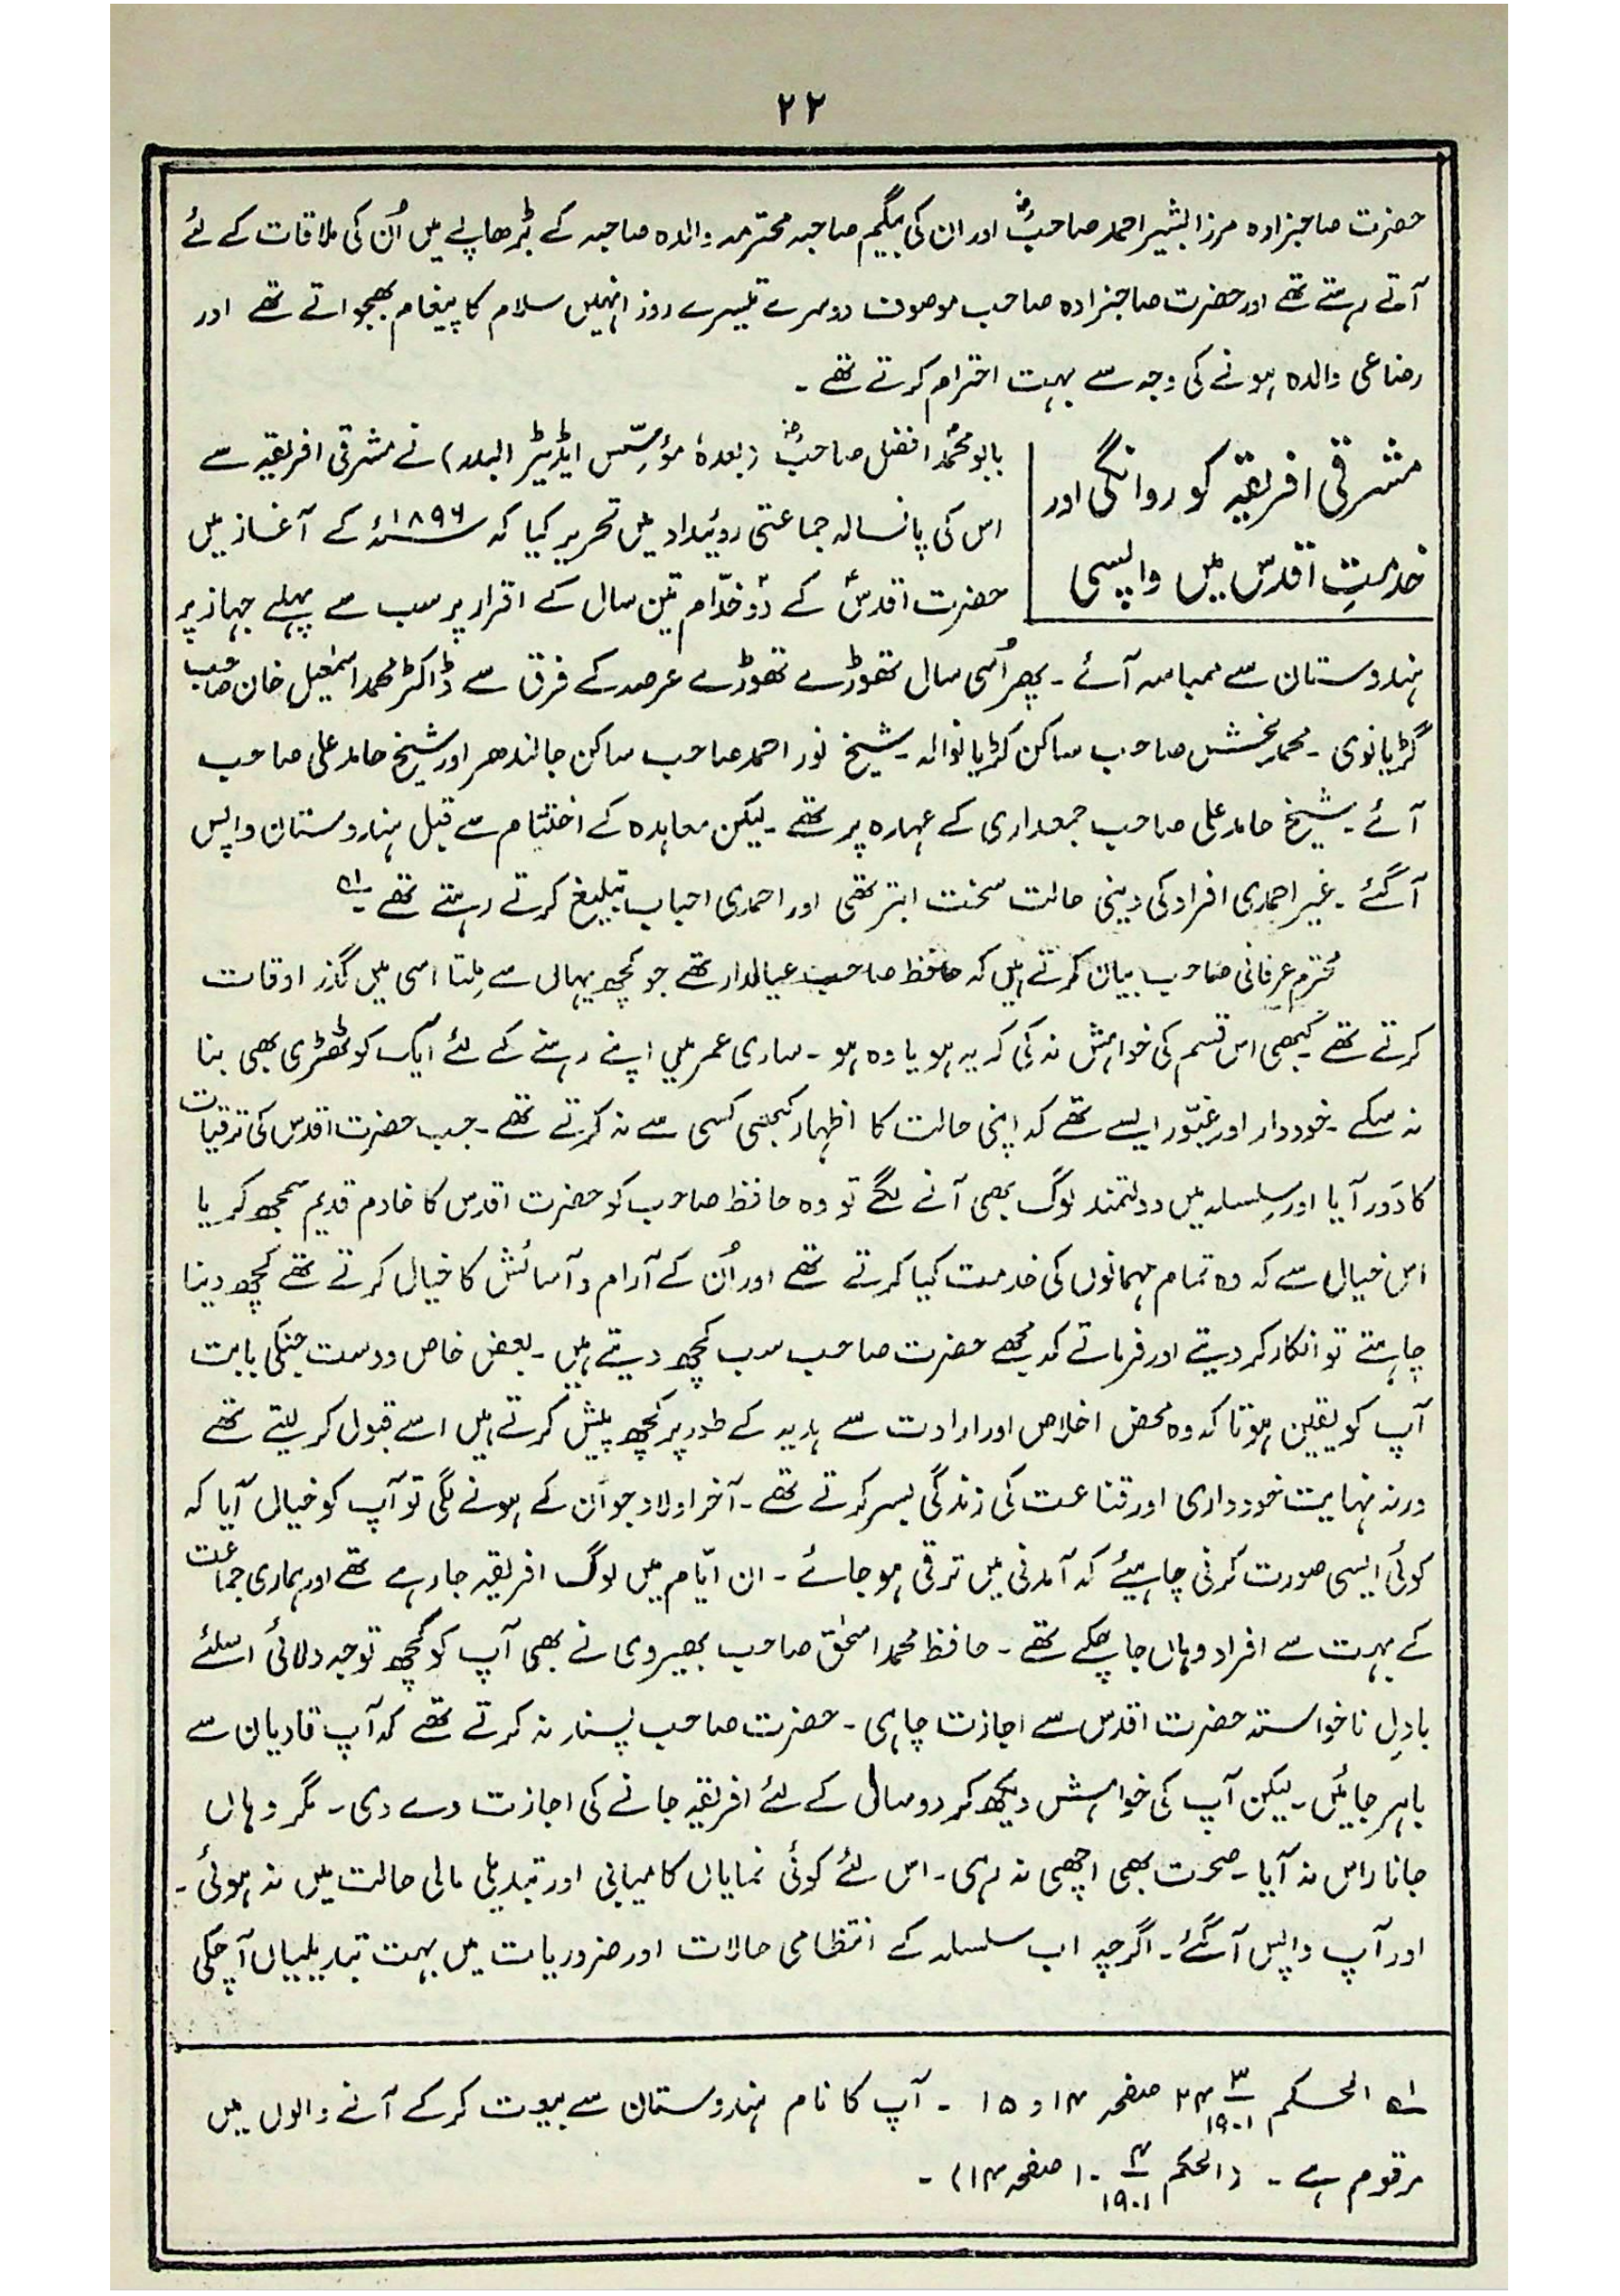 ۲۲
حضرت صاحبزادہ مرزا بشیر احمد صاحبؓ اور ان کی بیگم صاحبہ محترمہ والدہ صاحبہ کے بڑھاپے میں اُن کی ملاقات کے لئے
آتے رہتے تھے اور حضرت صاحبزادہ صاحب موصوف دوسرے تیسرے روز انہیں سلام کا پیغام بھجواتے تھے اور
رضاعی والدہ ہونے کی وجہ سے بہت احترام کرتے تھے۔
مشرقی افریقہ کو روانگی اور
خدمتِ اقدس میں واپسی
بابو محمدؐ افضل صاحبؓ (بعدہٗ مؤسّس ایڈیٹر البدر) نے مشرقی افریقہ سے
اس کی پانسالہ جماعتی روئیداد میں تحریر کیا کہ ۱۸۹۶ء کے آغاز میں
حضرت اقدسؑ کے دوؔ خدّام تین سال کے اقرار پر سب سے پہلے جہاز پر
ہندوستان سے ممباسہ آئے۔ پھر اُسی سال تھوڑے تھوڑے عرصہ کے فرق سے ڈاکٹر محمد اسمٰعیل خان صاحب
گڑیانوی۔ محمد بخش صاحب ساکن کڑیانوالہ۔ شیخ نور احمد صاحب ساکن جالندھر اور شیخ حامد علی صاحب
آئے۔ شیخ حامد علی صاحب جمعداری کے عہدہ پر تھے۔ لیکن معاہدہ کے اختتام سے قبل ہندوستان واپس
آ گئے۔ غیر احمدی افراد کی دینی حالت سخت ابتر تھی اور احمدی احباب تبلیغ کرتے رہتے تھے ۱؎
محترم عرفانی صاحب بیان کرتے ہیں کہ حافظ صاحب عیالدار تھے جو کچھ یہاں سے مِلتا اسی میں گذر اوقات
کرتے تھے۔ کبھی اس قسم کی خواہش نہ کی کہ یہ ہو یا وہ ہو۔ ساری عمر میں اپنے رہنے کے لئے ایک کوٹھڑی بھی بنا
نہ سکے۔ خوددار اور غیّور ایسے تھے کہ اپنی حالت کا اظہار کبھی کسی سے نہ کرتے تھے۔ جب حضرت اقدس کی ترقیات
کا دَور آیا اور سِلسلہ میں دولتمند لوگ بھی آنے لگے تو وہ حافظ صاحب کو حضرت اقدس کا خادم قدیم سمجھ کر یا
اس خیال سے کہ وہ تمام مہمانوں کی خدمت کیا کرتے تھے اور اُن کے آرام و آسائش کا خیال کرتے تھے کچھ دینا
چاہتے تو انکار کر دیتے اور فرماتے کہ مجھے حضرت صاحب سب کچھ دیتے ہیں۔ بعض خاص دوست جنکی بابت
آپ کو یقین ہوتا کہ وہ محض اخلاص اور ارادت سے ہدیہ کے طور پر کچھ پیش کرتے ہیں اسے قبول کر لیتے تھے
ورنہ نہایت خودداری اور قناعت کی زندگی بسر کرتے تھے۔ آخر اولاد جو اَن کے ہونے لگی تو آپ کو خیال آیا کہ
کوئی ایسی صورت کرنی چاہیئے کہ آمدنی میں ترقی ہو جائے۔ ان ایّام میں لوگ افریقہ جا رہے تھے اور ہماری جماعت
کے بہت سے افراد وہاں جا چکے تھے۔ حافظ محمد اسحٰق صاحب بھیروی نے بھی آپ کو کچھ توجہ دلائی اسلئے
بادِلِ ناخواستہ حضرت اقدس سے اجازت چاہی۔ حضرت صاحب پسند نہ کرتے تھے کہ آپ قادیان سے
باہر جائیں۔ لیکن آپ کی خواہش دیکھ کر دو سال کے لئے افریقہ جانے کی اجازت دے دی۔ مگر وہاں
جانا راس نہ آیا۔ صحت بھی اچھی نہ رہی۔ اس لئے کوئی نمایاں کامیابی اور تبدیلی مالی حالت میں نہ ہوئی۔
اور آپ واپس آ گئے۔ اگرچہ اب سلسلہ کے انتظامی حالات اور ضروریات میں بہت تبدیلیاں آ چکی
۱؎ الحکم ۲۴ ۳/۱۹۰۱ صفحہ ۱۴ و ۱۵ ۔ آپ کا نام ہندوستان سے بیعت کر کے آنے والوں میں
مرقوم ہے۔ (الحکم ۱۰ ۴/۱۹۰۱ صفحہ ۱۴)۔